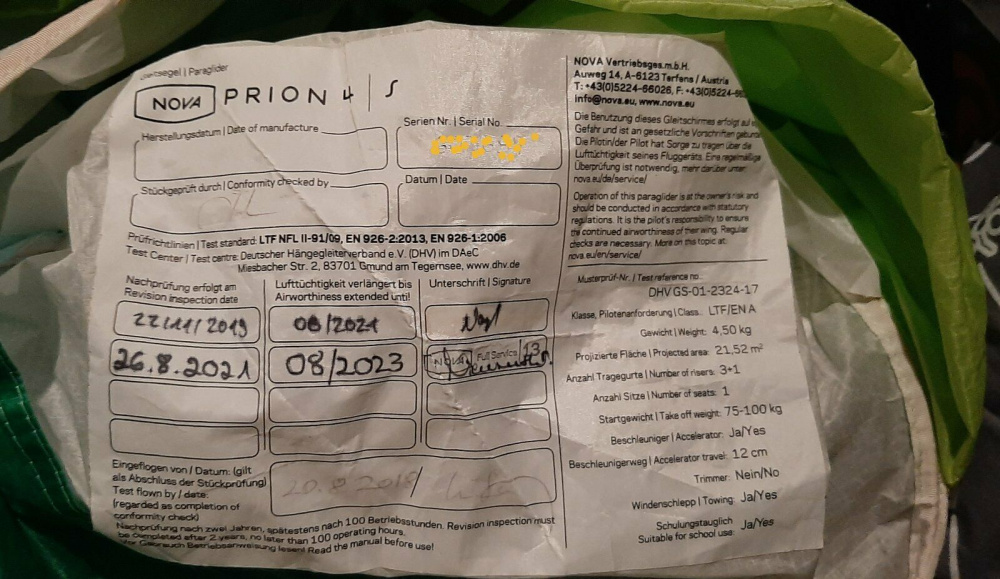 Gleitsegel | Paraglider
NOVA PRION 4 | S
Herstellungsdatum | Date of manufacture
Serien Nr. | Serial No.
Stückgeprüft durch | Conformity checked by
Datum | Date
Prüfrichtlinien | Test standard: LTF NFL II-91/09, EN 926-2:2013, EN 926-1:2006
Test Center | Test centre: Deutscher Hängegleiterverband e.V. (DHV) im DAeC
Miesbacher Str. 2, 83701 Gmund am Tegernsee, www.dhv.de
Nachprüfung erfolgt am
Revision inspection date
Lufttüchtigkeit verlängert bis
Airworthiness extended until
Unterschrift | Signature
08/2021
26.8.2021
08/2023
NOVA Full Service 13
Eingeflogen von / Datum: (gilt
als Abschluss der Stückprüfung)
Test flown by / date:
(regarded as completion of
conformity check)
20.8.2018
Nachprüfung nach zwei Jahren, spätestens nach 100 Betriebsstunden. Revision inspection must
be completed after 2 years, no later than 100 operating hours.
Vor Gebrauch Betriebsanweisung lesen! Read the manual before use!
NOVA Vertriebsges.m.b.H.
Auweg 14, A-6123 Terfens / Austria
T: +43(0)5224-66026, F: +43(0)5224-66
info@nova.eu, www.nova.eu
Die Benutzung dieses Gleitschirmes erfolgt auf
Gefahr und ist an gesetzliche Vorschriften
Die Pilotin/der Pilot hat Sorge zu tragen über die
Lufttüchtigkeit seines Fluggeräts. Eine regelmäßige
Überprüfung ist notwendig, mehr darüber unter:
nova.eu/de/service/
Operation of this paraglider is at the owner's risk and
should be conducted in accordance with statutory
regulations. It is the pilot's responsibility to ensure
the continued airworthiness of their wing. Regular
checks are necessary. More on this topic at:
nova.eu/en/service/
Musterprüf-Nr. | Test reference no.
DHV GS-01-2324-17
Klasse, Pilotenanforderung | Class.: LTF/EN A
Gewicht | Weight: 4,50 kg
Projizierte Fläche | Projected area: 21,52 m²
Anzahl Tragegurte | Number of risers: 3+1
Anzahl Sitze | Number of seats: 1
Startgewicht | Take off weight: 75-100 kg
Beschleuniger | Accelerator: Ja/Yes
Beschleunigerweg | Accelerator travel: 12 cm
Trimmer: Nein/No
Windenschlepp | Towing: Ja/Yes
Schulungstauglich
Suitable for school use: Ja/Yes